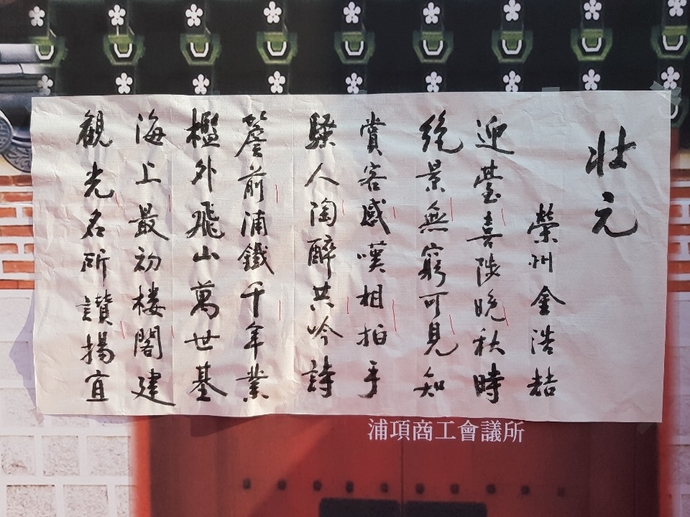 壯元
榮州金浩喆
迎臺喜陟晩秋時
絶景無窮可見知
賞客感嘆相拍手
騷人陶醉共吟詩
簷前浦鐵千年業
檻外飛山萬世基
海上最初楼閣建
観光名所讚揚宜
浦項商工會議所